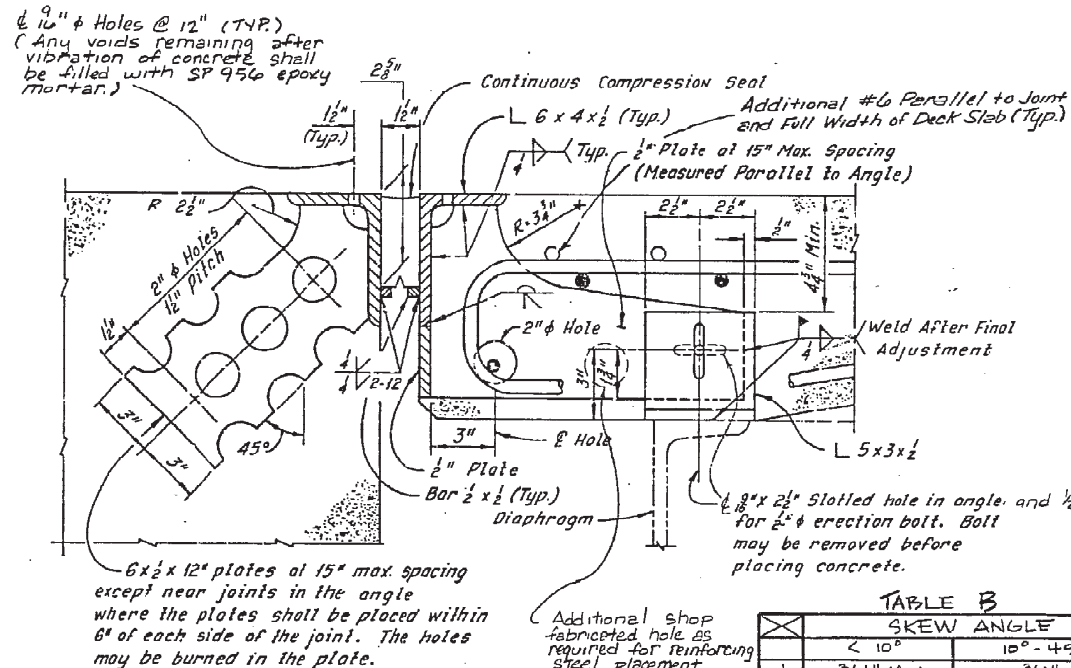 ℄ 9/16" ϕ Holes @ 12" (TYP.)
(Any voids remaining after
vibration of concrete shall
be filled with SP 956 epoxy
mortar.)
2 5/8"
1 1/2"
(Typ.)
1 1/2"
Continuous Compression Seal
L 6 x 4 x 1/2 (Typ.)
Additional #6 Parallel to Joint
and Full Width of Deck Slab (Typ.)
1/4
Typ.
1/2" Plate at 15" Max. Spacing
(Measured Parallel to Angle)
R 2 1/2"
R=3 3/4"
2 1/2"
2 1/2"
1/2"
4 3/4" Min.
2" ϕ Holes
1 1/2" Pitch
1 1/2"
2" ϕ Hole
1/4
Weld After Final
Adjustment
1/4
1/4
2-12
3"
1 3/4"
3"
3"
45°
3"
℄ Hole
L 5 x 3 x 1/2
1/2" Plate
Bar 1/2 x 1/2 (Typ.)
Diaphragm
℄ 9/16" x 2 1/2" Slotted hole in angle, and
for 1/2" ϕ erection bolt. Bolt
may be removed before
placing concrete.
6 x 1/2 x 12" plates at 15" max. spacing
except near joints in the angle
where the plates shall be placed within
6" of each side of the joint. The holes
may be burned in the plate.
Additional shop
fabricated hole as
required for reinforcing
steel placement
TABLE B
SKEW ANGLE
< 10°
10° - 45